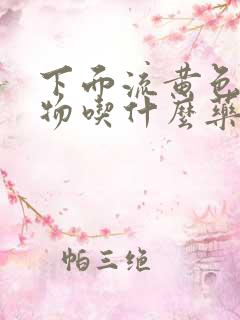 下面流黄色
物喫什麼藥
帕三绝